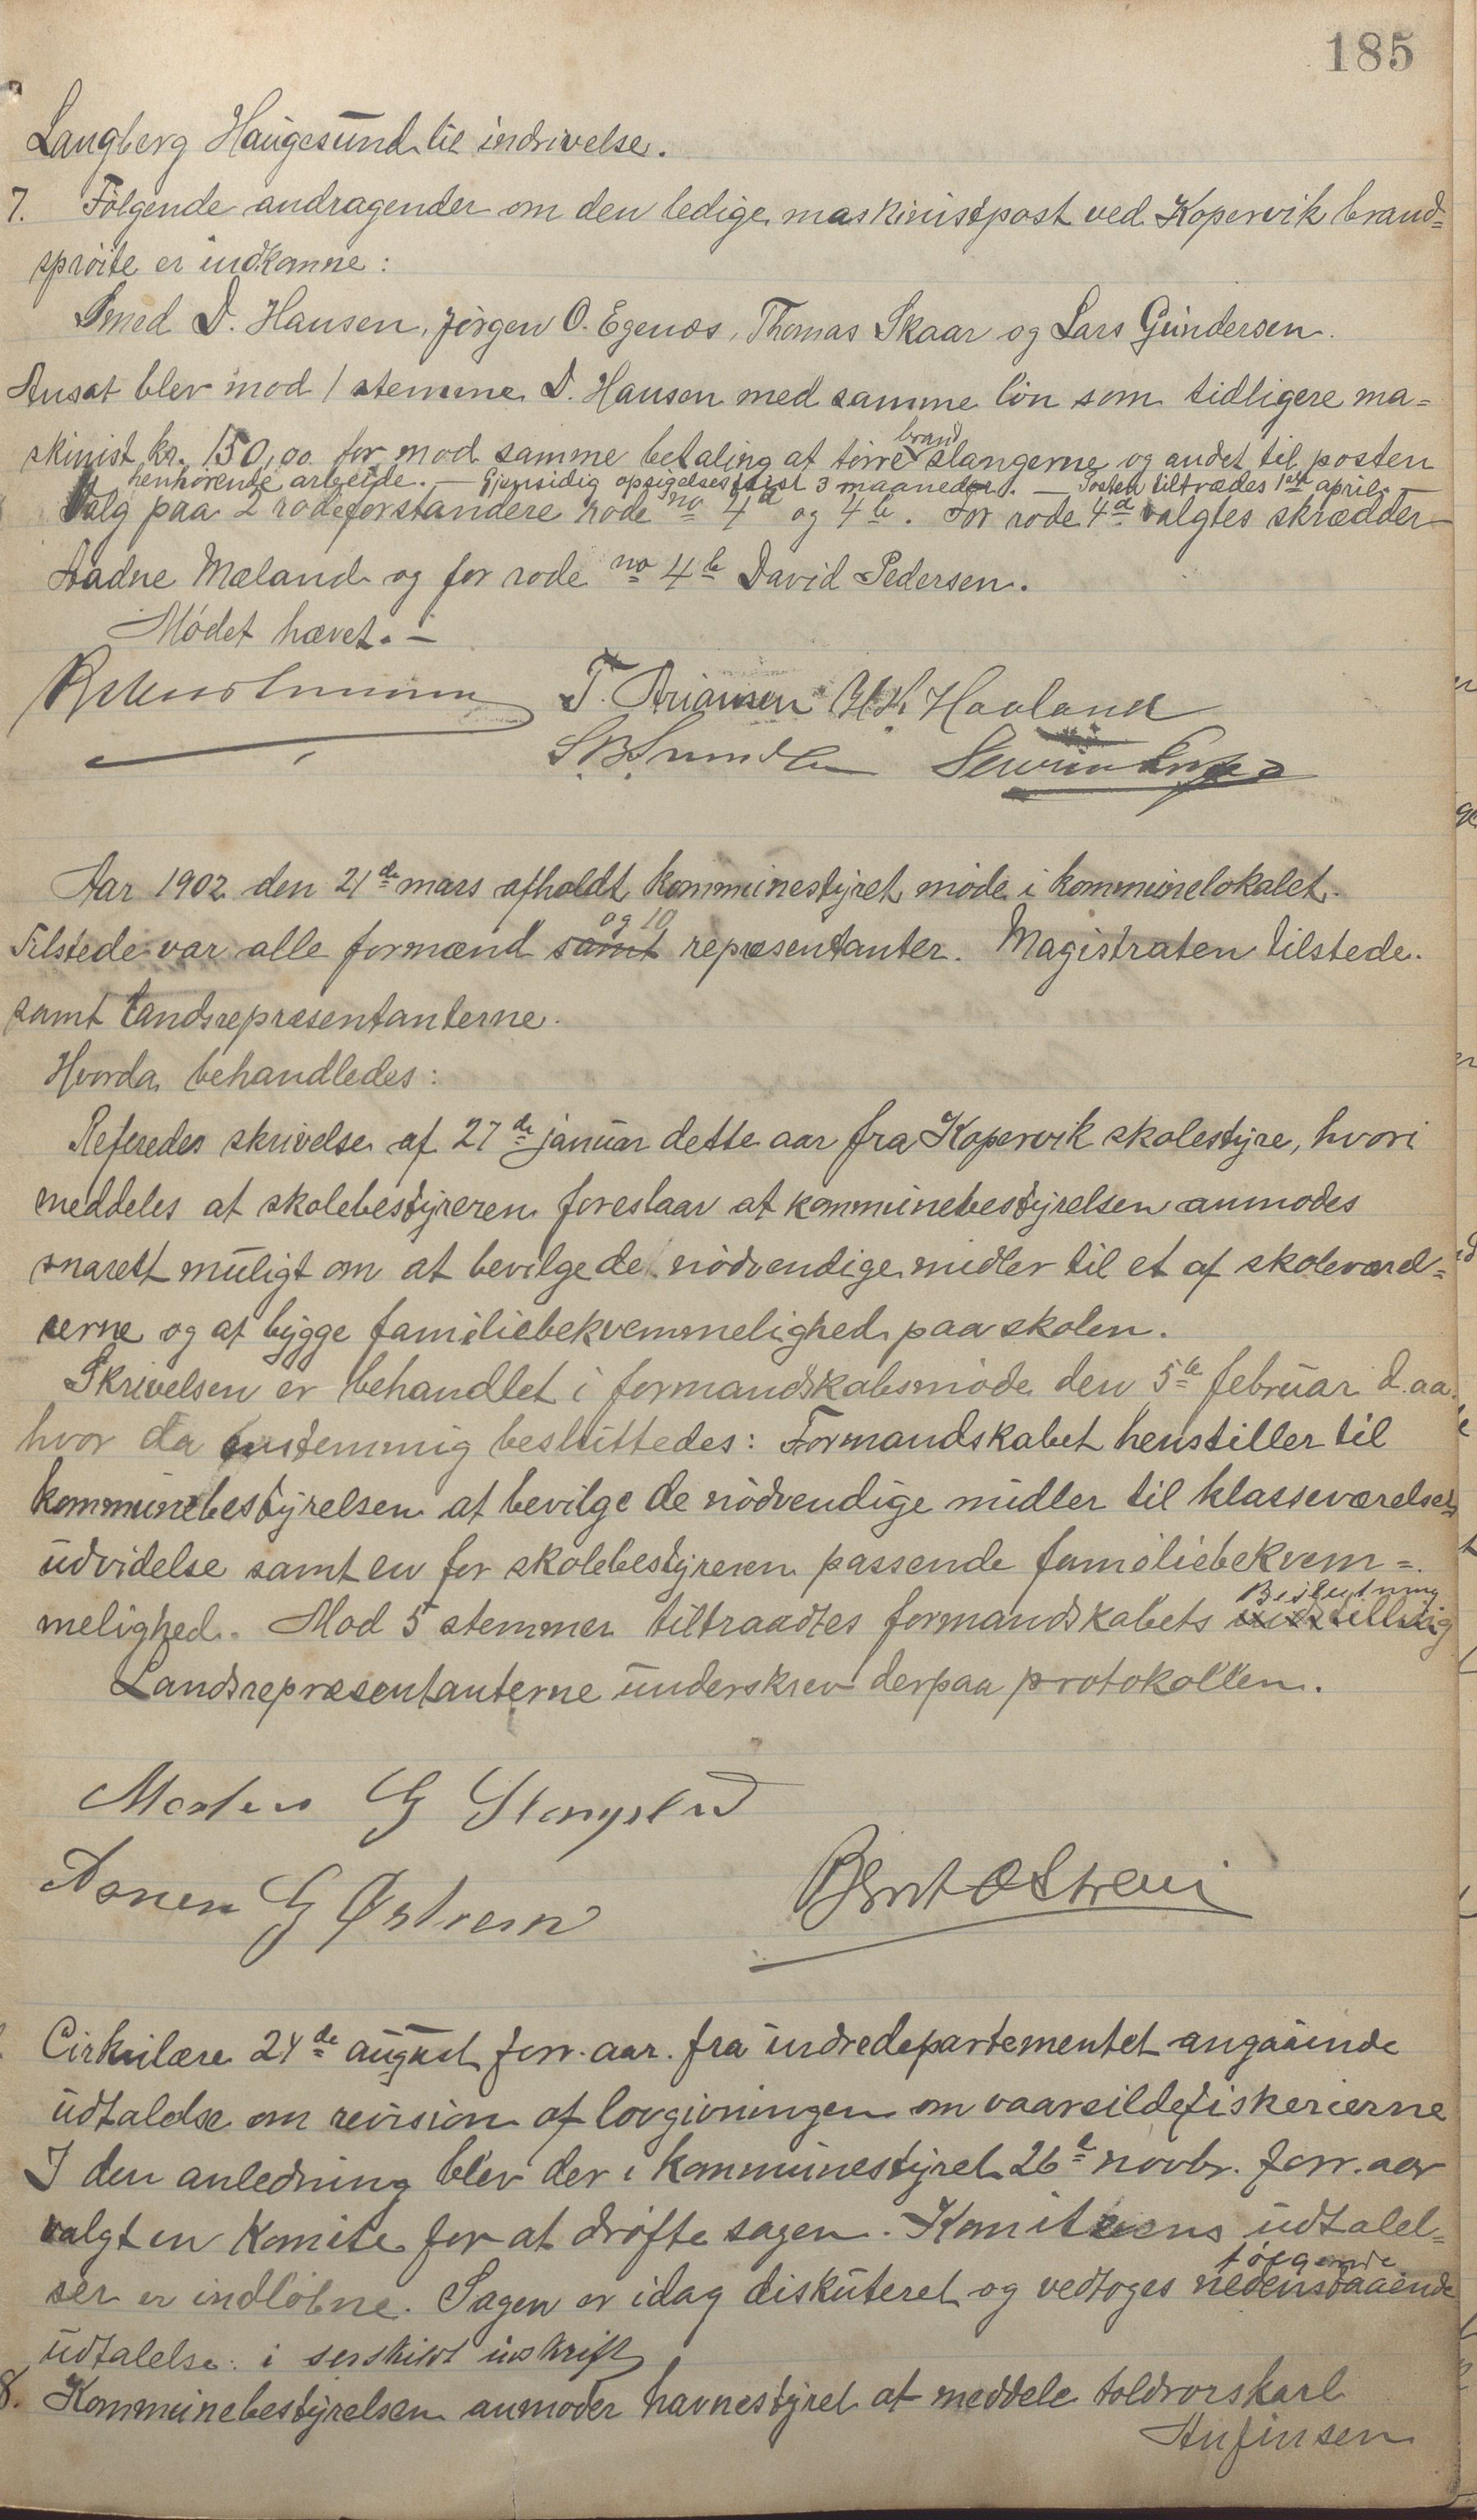 185
Langberg Haugesund til indrivelse.
7. Følgende andragender om den ledige maskinistpost ved Kopervik brand=
sprøite er indkomne:
Smed D. Hansen, Jørgen O. Egenæs, Thomas Skaar og Lars Gundersen.
Ansat blev mod 1 stemme D. Hansen med samme løn som tidligere ma=
skinist kr. 150,00 for mod samme betaling at tørre brand slangerne og andet til posten
henhørende arbeide. — Gjensidig opsigelsesfrist 3 maaneder. — Posten tiltrædes 1ste april. —
Valg paa 2 rodeforstandere rode no 4a og 4b. For rode 4a valgtes skrædder
Aadne Mæland og for rode no 4b David Pedersen.
Mødet hævet. —
T. Ariansen H. H. Haaland
Aar 1902 den 21de mars afholdt kommunestyret møde i kommunelokalet.
Tilstede var alle formænd samt og 10 repræsentanter. Magistraten tilstede.
samt landsrepræsentanterne.
Hvorda behandledes:
Referedes skrivelse af 27de januar dette aar fra Kopervik skolestyre, hvori
meddeles at skolebestyreren foreslaar at kommunebestyrelsen anmodes
snarest muligt om at bevilge de nødvendige midler til et af skoleværel=
serne og at bygge familiebekvemmelighed paa skolen.
Skrivelsen er behandlet i formandskabsmøde den 5te februar d. aa.
hvor da enstemmig besluttedes: Formandskabet henstiller til
kommunebestyrelsen at bevilge de nødvendige midler til klasseværelsets
udvidelse samt en for skolebestyreren passende familiebekvem=
melighed. Mod 5 stemmer tiltraadtes formandskabets Beslutning
Landsrepræsentanterne underskrev derpaa protokollen.
Morten G
G Østrem
Bernt Østrem
Cirkulære 24de august forr. aar. fra indredepartementet angaaende
udtalelse om revision af lovgivningen om vaarsildefiskerierne
I den anledning blev der i kommunestyret 26de novbr. forr. aar
valgt en komite for at drøfte sagen. Komiteens udtalel=
ser er indløbne. Sagen er idag diskuteret og vedtoges nedenstaaende følgende
udtalelse: i serskilt inskrift
8. Kommunebestyrelsen anmoder havnestyret at meddele toldrorskarl
Anfinsen